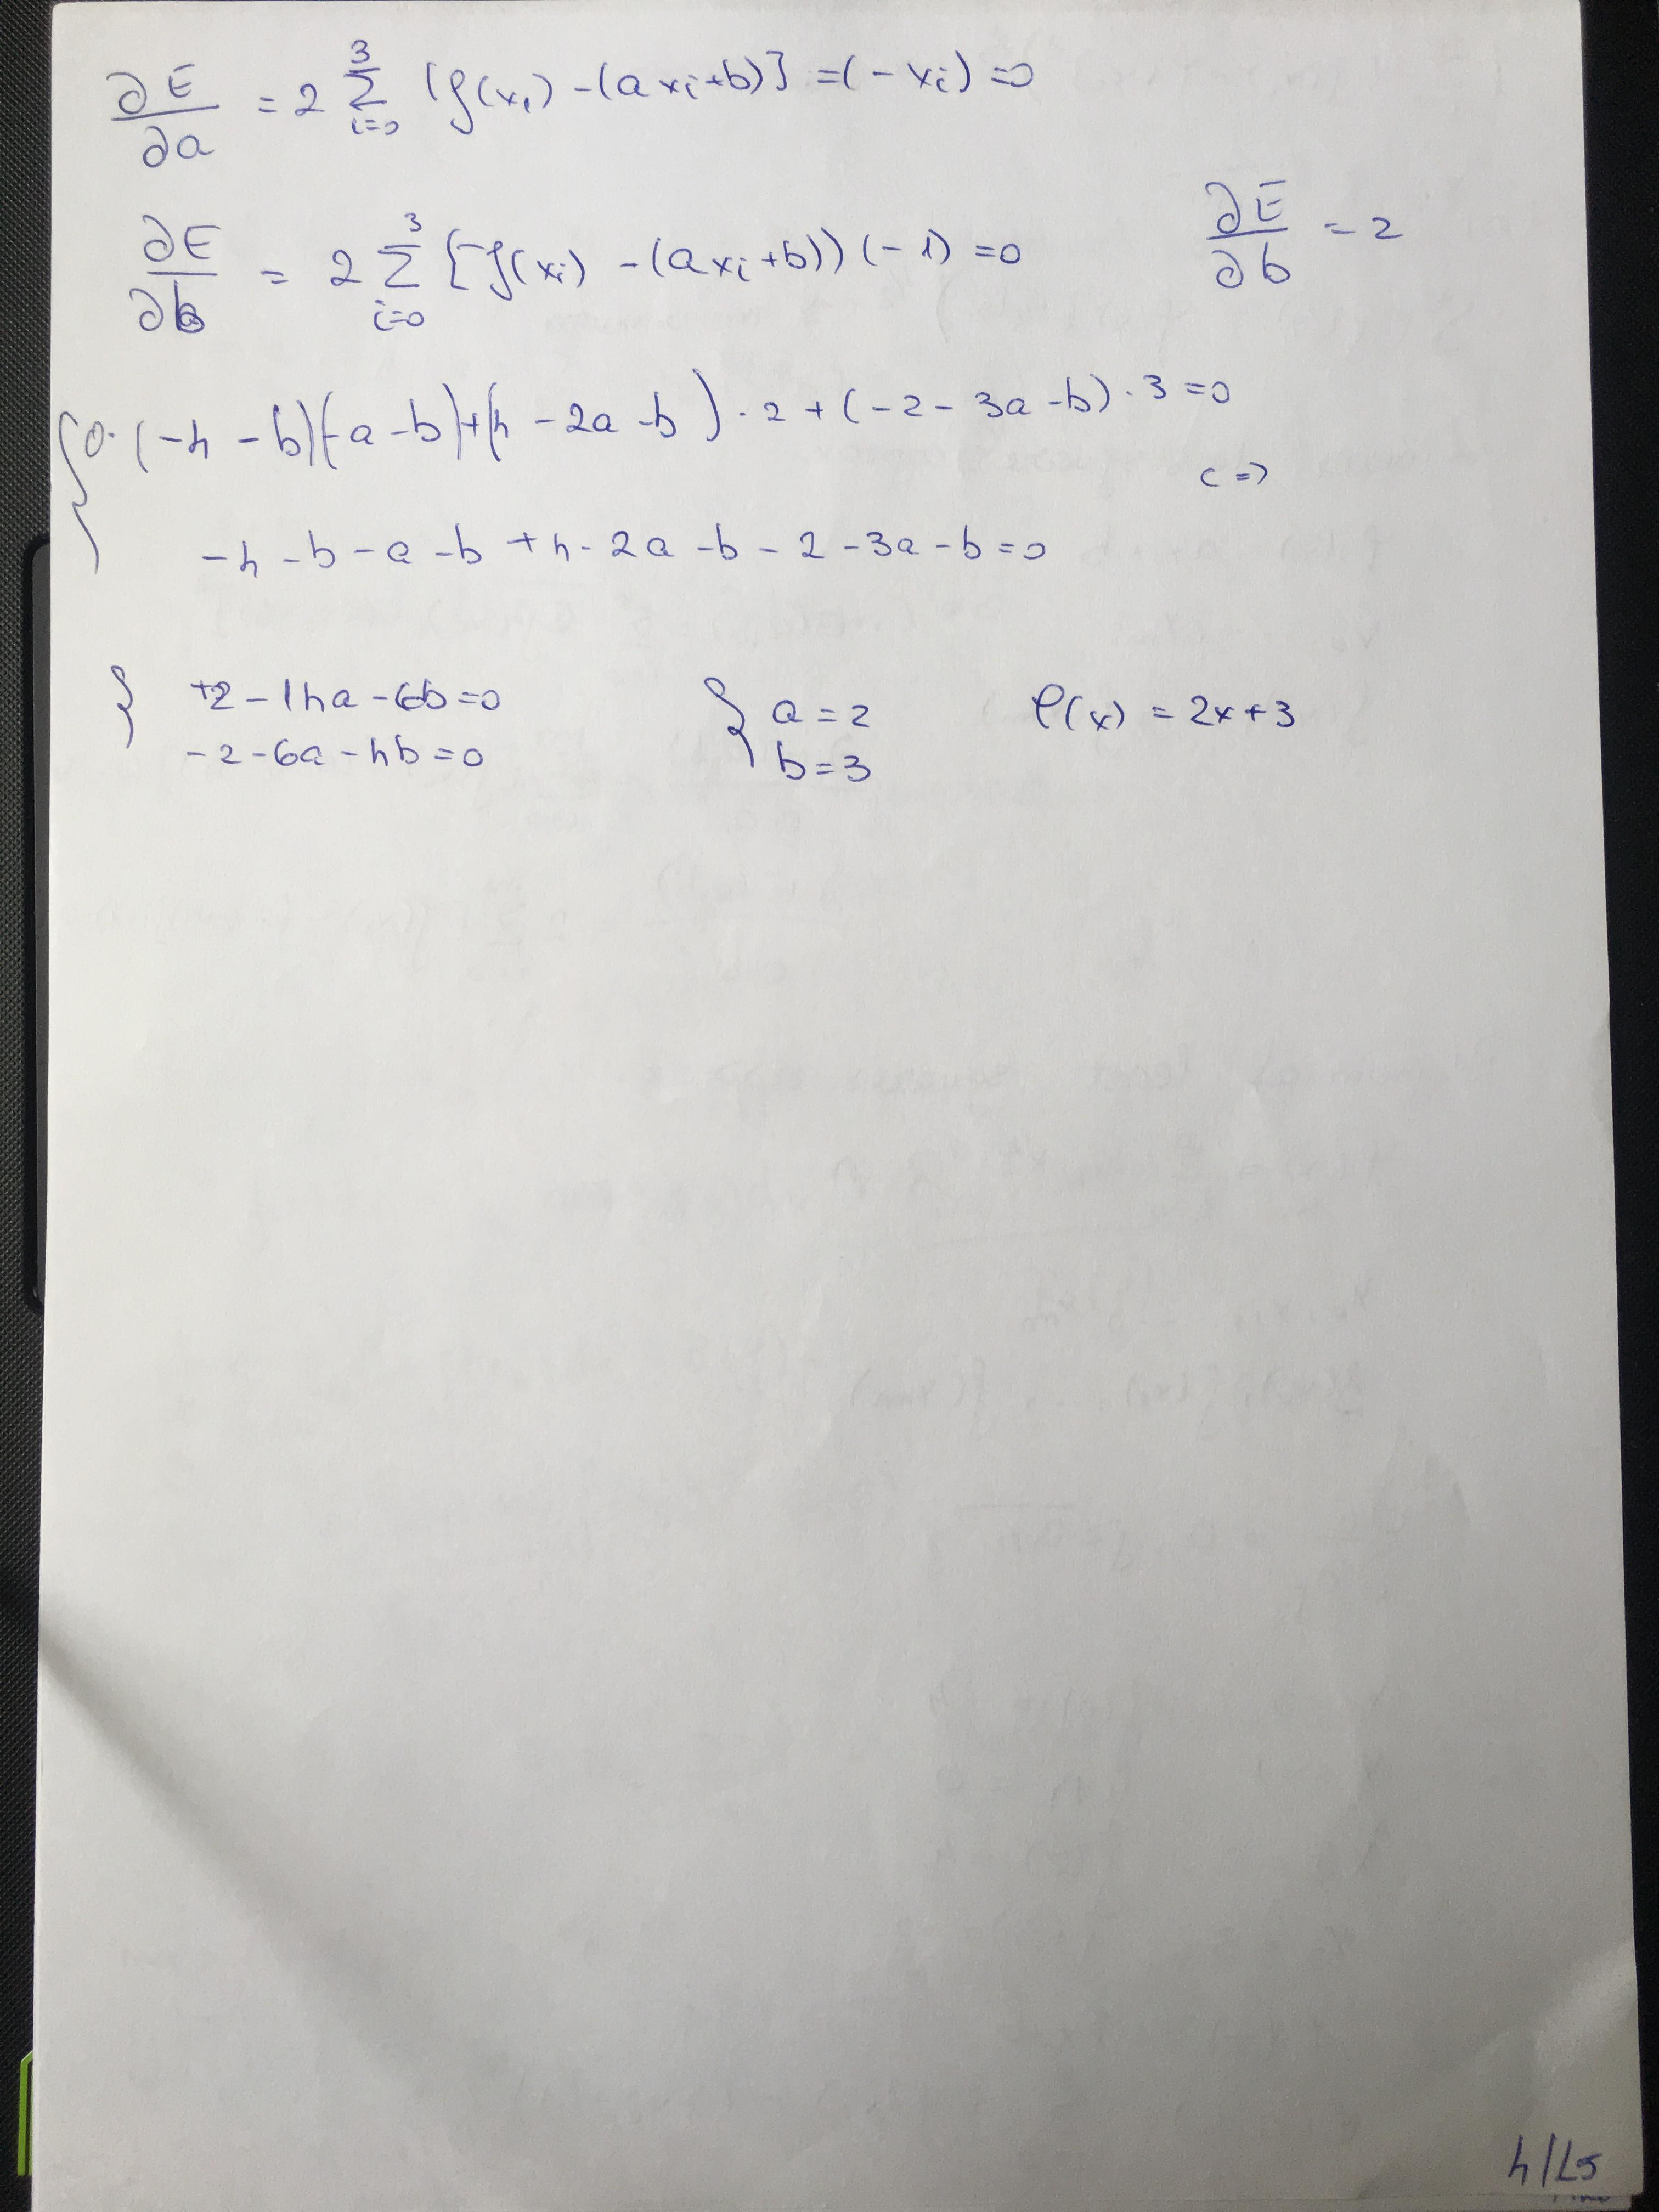 ∂E/∂a = 2 Σ_{i=0}^{3} (f(xi) - (axi+b)] =(-xi) =0
∂E/∂b = 2 Σ_{i=0}^{3} [f(xi) - (axi+b)) (-1) =0 ∂E/∂b = 2
{ 0·(-4 -b)(-a -b)+(4 -2a -b)·2+(-2-3a-b)·3=0
c=>
-4 -b -a -b +4-2a -b -2 -3a -b=0
{ +2-14a-6b=0 { a=2 φ(x) = 2x+3
-2-6a-4b=0 b=3
4/L5